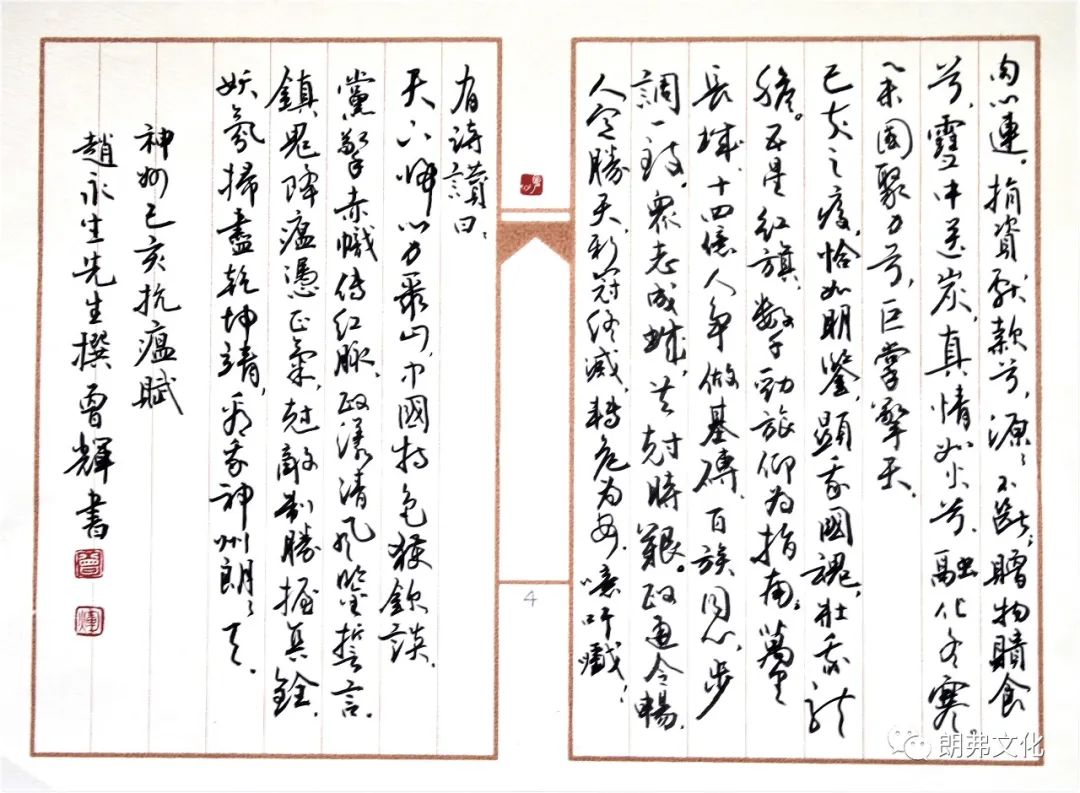 心連。捐資献款兮,源々不斷;贈物饋食
兮,雪中送炭。真情如火兮,融化冬寒。
舉國聚力兮,巨掌擎天。
己亥之疫,恰如明鑒,顯我國魂,壯我龍
膽。五星紅旗,數千勁旅仰為指南;萬里
長城,十四億人爭做基磚。百族同心,步
調一致。眾志成城,共尅時艱。政通令暢,
人定勝天,新冠終滅,轉危為安。噫吁戲!
有詩讚曰:
天下歸心力聚山,中國特色獲欽談。
黨擎赤幟傳紅脈,政漾清風鑒誓言。
鎮鬼降瘟憑正氣,尅敵制勝握真銓。
妖氛掃盡乾坤靖,我神州朗々天。
神州己亥抗瘟賦
趙永生先生撰曾輝書
曾
輝
4
朗弗文化